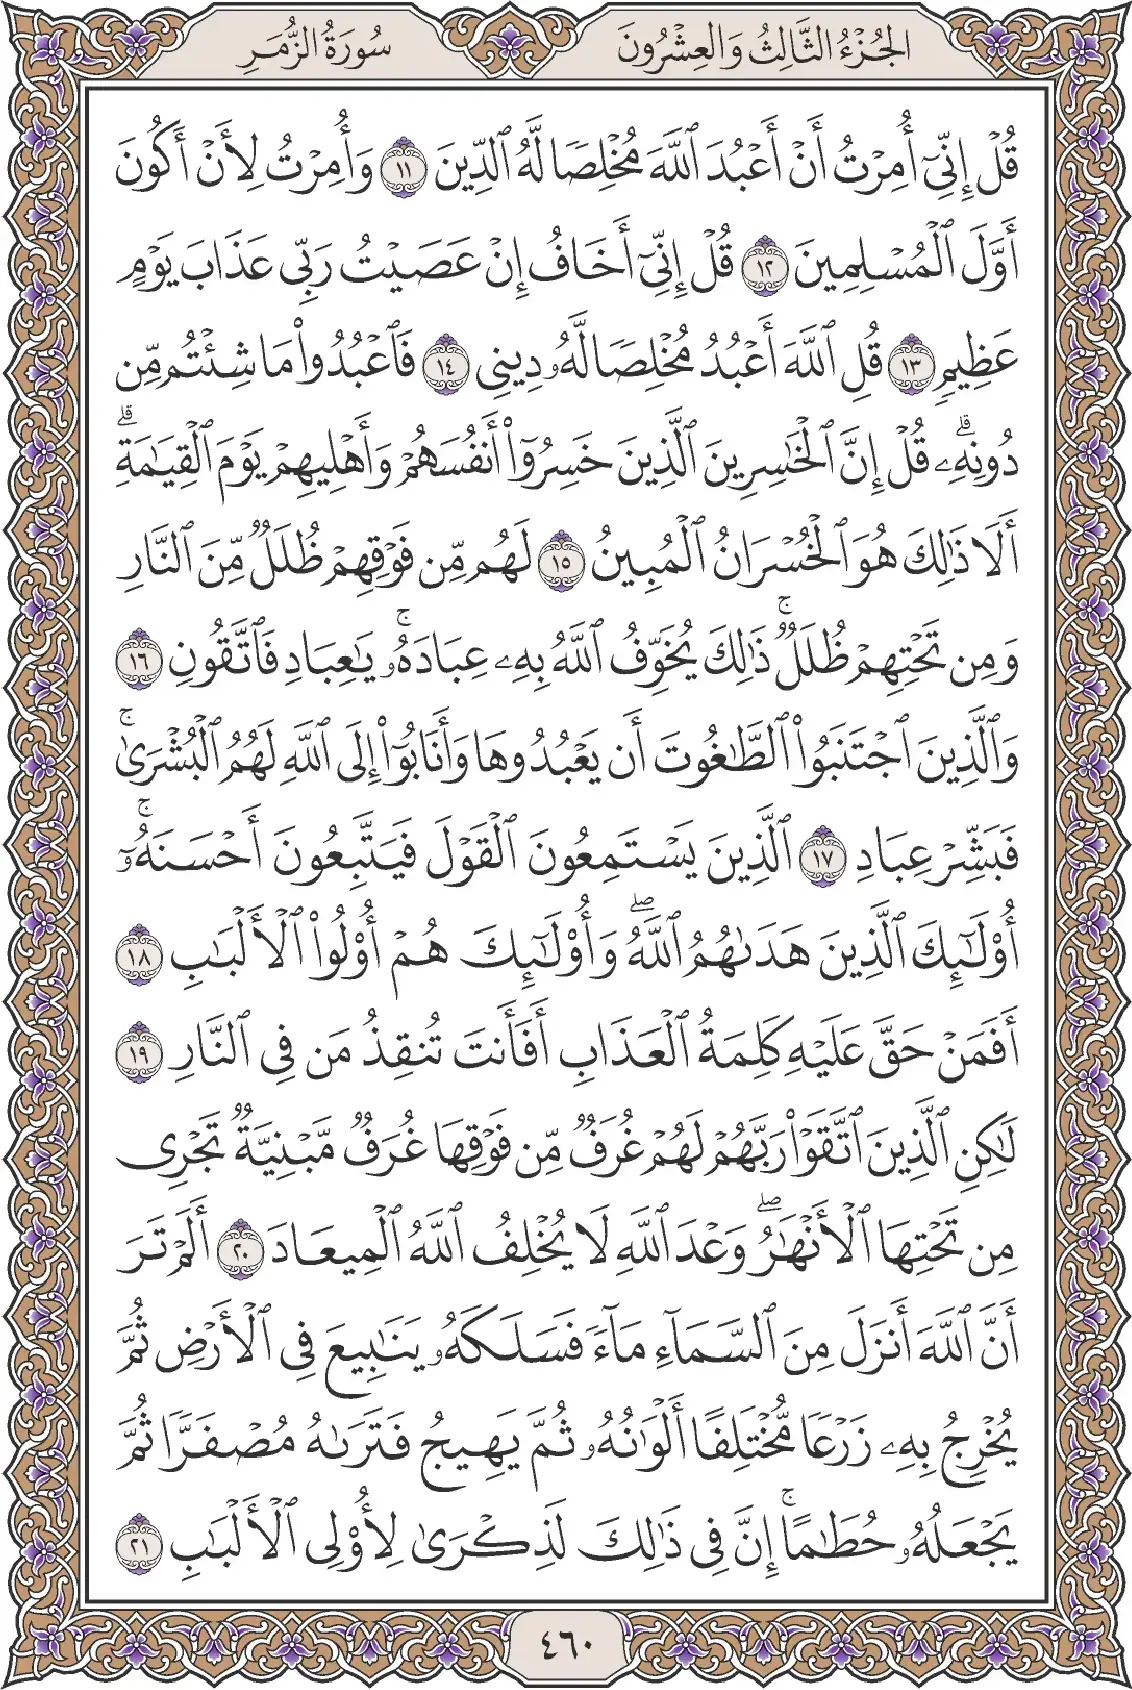 الجُزْءُ الثَّالِثُ وَالعِشْرُونَ
سُورَةُ الزُّمَرِ
قُلْ إِنِّيٓ أُمِرْتُ أَنْ أَعْبُدَ ٱللَّهَ مُخْلِصًا لَّهُ ٱلدِّينَ ١١ وَأُمِرْتُ لِأَنْ أَكُونَ
أَوَّلَ ٱلْمُسْلِمِينَ ١٢ قُلْ إِنِّيٓ أَخَافُ إِنْ عَصَيْتُ رَبِّي عَذَابَ يَوْمٍ
عَظِيمٍ ١٣ قُلِ ٱللَّهَ أَعْبُدُ مُخْلِصًا لَّهُۥ دِينِي ١٤ فَٱعْبُدُواْ مَا شِئْتُم مِّن
دُونِهِۦۗ قُلْ إِنَّ ٱلْخَٰسِرِينَ ٱلَّذِينَ خَسِرُوٓاْ أَنفُسَهُمْ وَأَهْلِيهِمْ يَوْمَ ٱلْقِيَٰمَةِۗ
أَلَا ذَٰلِكَ هُوَ ٱلْخُسْرَانُ ٱلْمُبِينُ ١٥ لَهُم مِّن فَوْقِهِمْ ظُلَلٌ مِّنَ ٱلنَّارِ
وَمِن تَحْتِهِمْ ظُلَلٌۚ ذَٰلِكَ يُخَوِّفُ ٱللَّهُ بِهِۦ عِبَادَهُۥۚ يَٰعِبَادِ فَٱتَّقُونِ ١٦
وَٱلَّذِينَ ٱجْتَنَبُواْ ٱلطَّٰغُوتَ أَن يَعْبُدُوهَا وَأَنَابُوٓاْ إِلَى ٱللَّهِ لَهُمُ ٱلْبُشْرَىٰۚ
فَبَشِّرْ عِبَادِ ١٧ ٱلَّذِينَ يَسْتَمِعُونَ ٱلْقَوْلَ فَيَتَّبِعُونَ أَحْسَنَهُۥٓۚ
أُوْلَٰٓئِكَ ٱلَّذِينَ هَدَىٰهُمُ ٱللَّهُۖ وَأُوْلَٰٓئِكَ هُمْ أُوْلُواْ ٱلْأَلْبَٰبِ ١٨
أَفَمَنْ حَقَّ عَلَيْهِ كَلِمَةُ ٱلْعَذَابِ أَفَأَنتَ تُنقِذُ مَن فِي ٱلنَّارِ ١٩
لَٰكِنِ ٱلَّذِينَ ٱتَّقَوْاْ رَبَّهُمْ لَهُمْ غُرَفٌ مِّن فَوْقِهَا غُرَفٌ مَّبْنِيَّةٌ تَجْرِي
مِن تَحْتِهَا ٱلْأَنْهَٰرُۖ وَعْدَ ٱللَّهِ لَا يُخْلِفُ ٱللَّهُ ٱلْمِيعَادَ ٢٠ أَلَمْ تَرَ
أَنَّ ٱللَّهَ أَنزَلَ مِنَ ٱلسَّمَآءِ مَآءً فَسَلَكَهُۥ يَنَٰبِيعَ فِي ٱلْأَرْضِ ثُمَّ
يُخْرِجُ بِهِۦ زَرْعًا مُّخْتَلِفًا أَلْوَٰنُهُۥ ثُمَّ يَهِيجُ فَتَرَىٰهُ مُصْفَرًّا ثُمَّ
يَجْعَلُهُۥ حُطَٰمًاۚ إِنَّ فِي ذَٰلِكَ لَذِكْرَىٰ لِأُوْلِي ٱلْأَلْبَٰبِ ٢١
٤٦٠